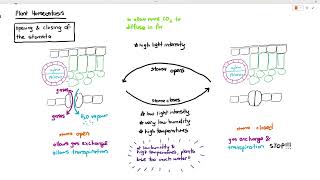 Plant Homeostasis
opening & closing of
the stomata
to allow more CO₂ to
diffuse in for
* high light intensity
stoma open
stoma closes
* low light intensity
* very low humidity
* high temperatures
* low humidity &
high temperatures, plants
lose too much water!
gases
gases
H₂O vapour
stoma open
allows gas exchange
allows transpiration
stoma closed
gas exchange &
transpiration STOP!!!